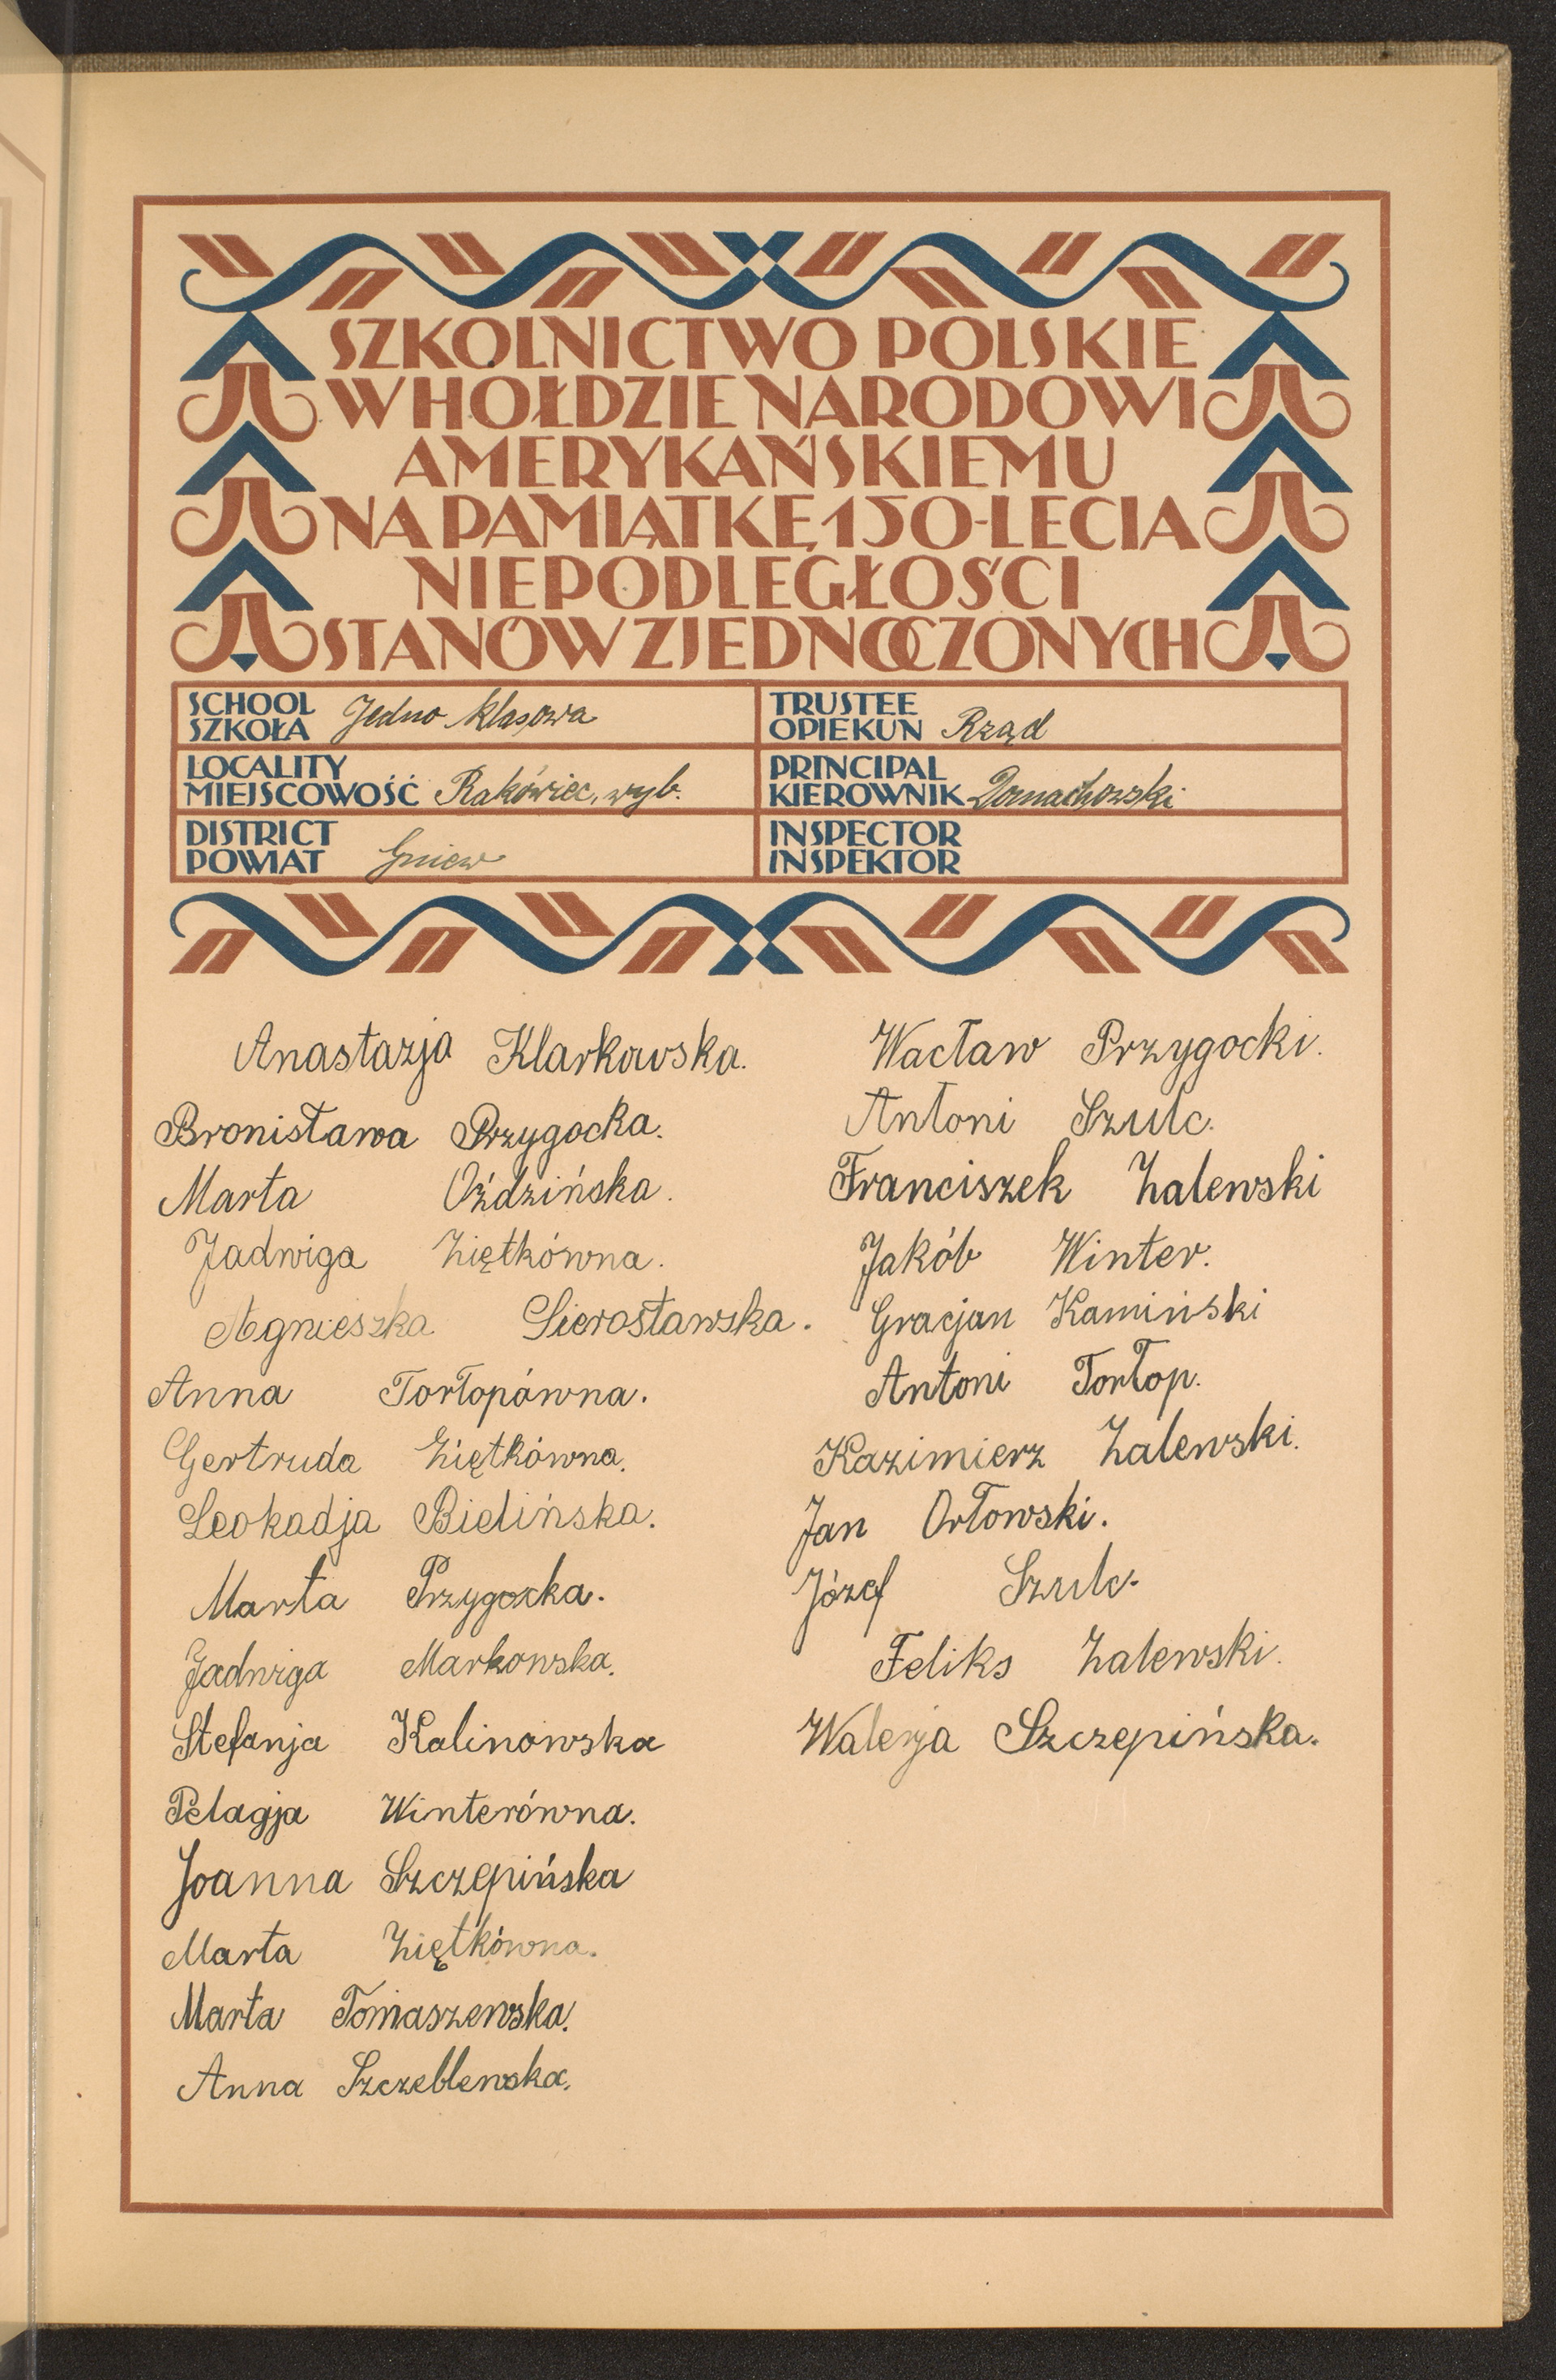 SZKOLNICTWO POLSKIE
W HOŁDZIE NARODOWI
AMERYKAŃSKIEMU
NA PAMIĄTKĘ 150-LECIA
NIEPODLEGŁOŚCI
STANÓW ZJEDNOCZONYCH
SCHOOL
SZKOŁA Jedno klasowa
TRUSTEE
OPIEKUN Rząd
LOCALITY
MIEJSCOWOŚĆ Rakówiec, wyb.
PRINCIPAL
KIEROWNIK Domachowski
DISTRICT
POWIAT Gniew
INSPECTOR
INSPEKTOR
Anastazja Klarkowska.
Bronisława Przygocka.
Marta Oździńska.
Jadwiga Ziętkówna.
Agnieszka Sierosławska.
Anna Tortopówna.
Gertruda Ziętkówna.
Leokadja Bielińska.
Marta Przygocka.
Jadwiga Markowska.
Stefanja Kalinowska
Pelagja Winterówna.
Joanna Szczepińska
Marta Ziętkówna.
Marta Tomaszewska.
Anna Szczeblewska.
Wacław Przygocki.
Antoni Szulc.
Franciszek Zalewski
Jakób Winter.
Gracjan Kamiński
Antoni Tortop.
Kazimierz Zalewski.
Jan Orłowski.
Józef Szulc.
Feliks Zalewski.
Walerja Szczepińska.